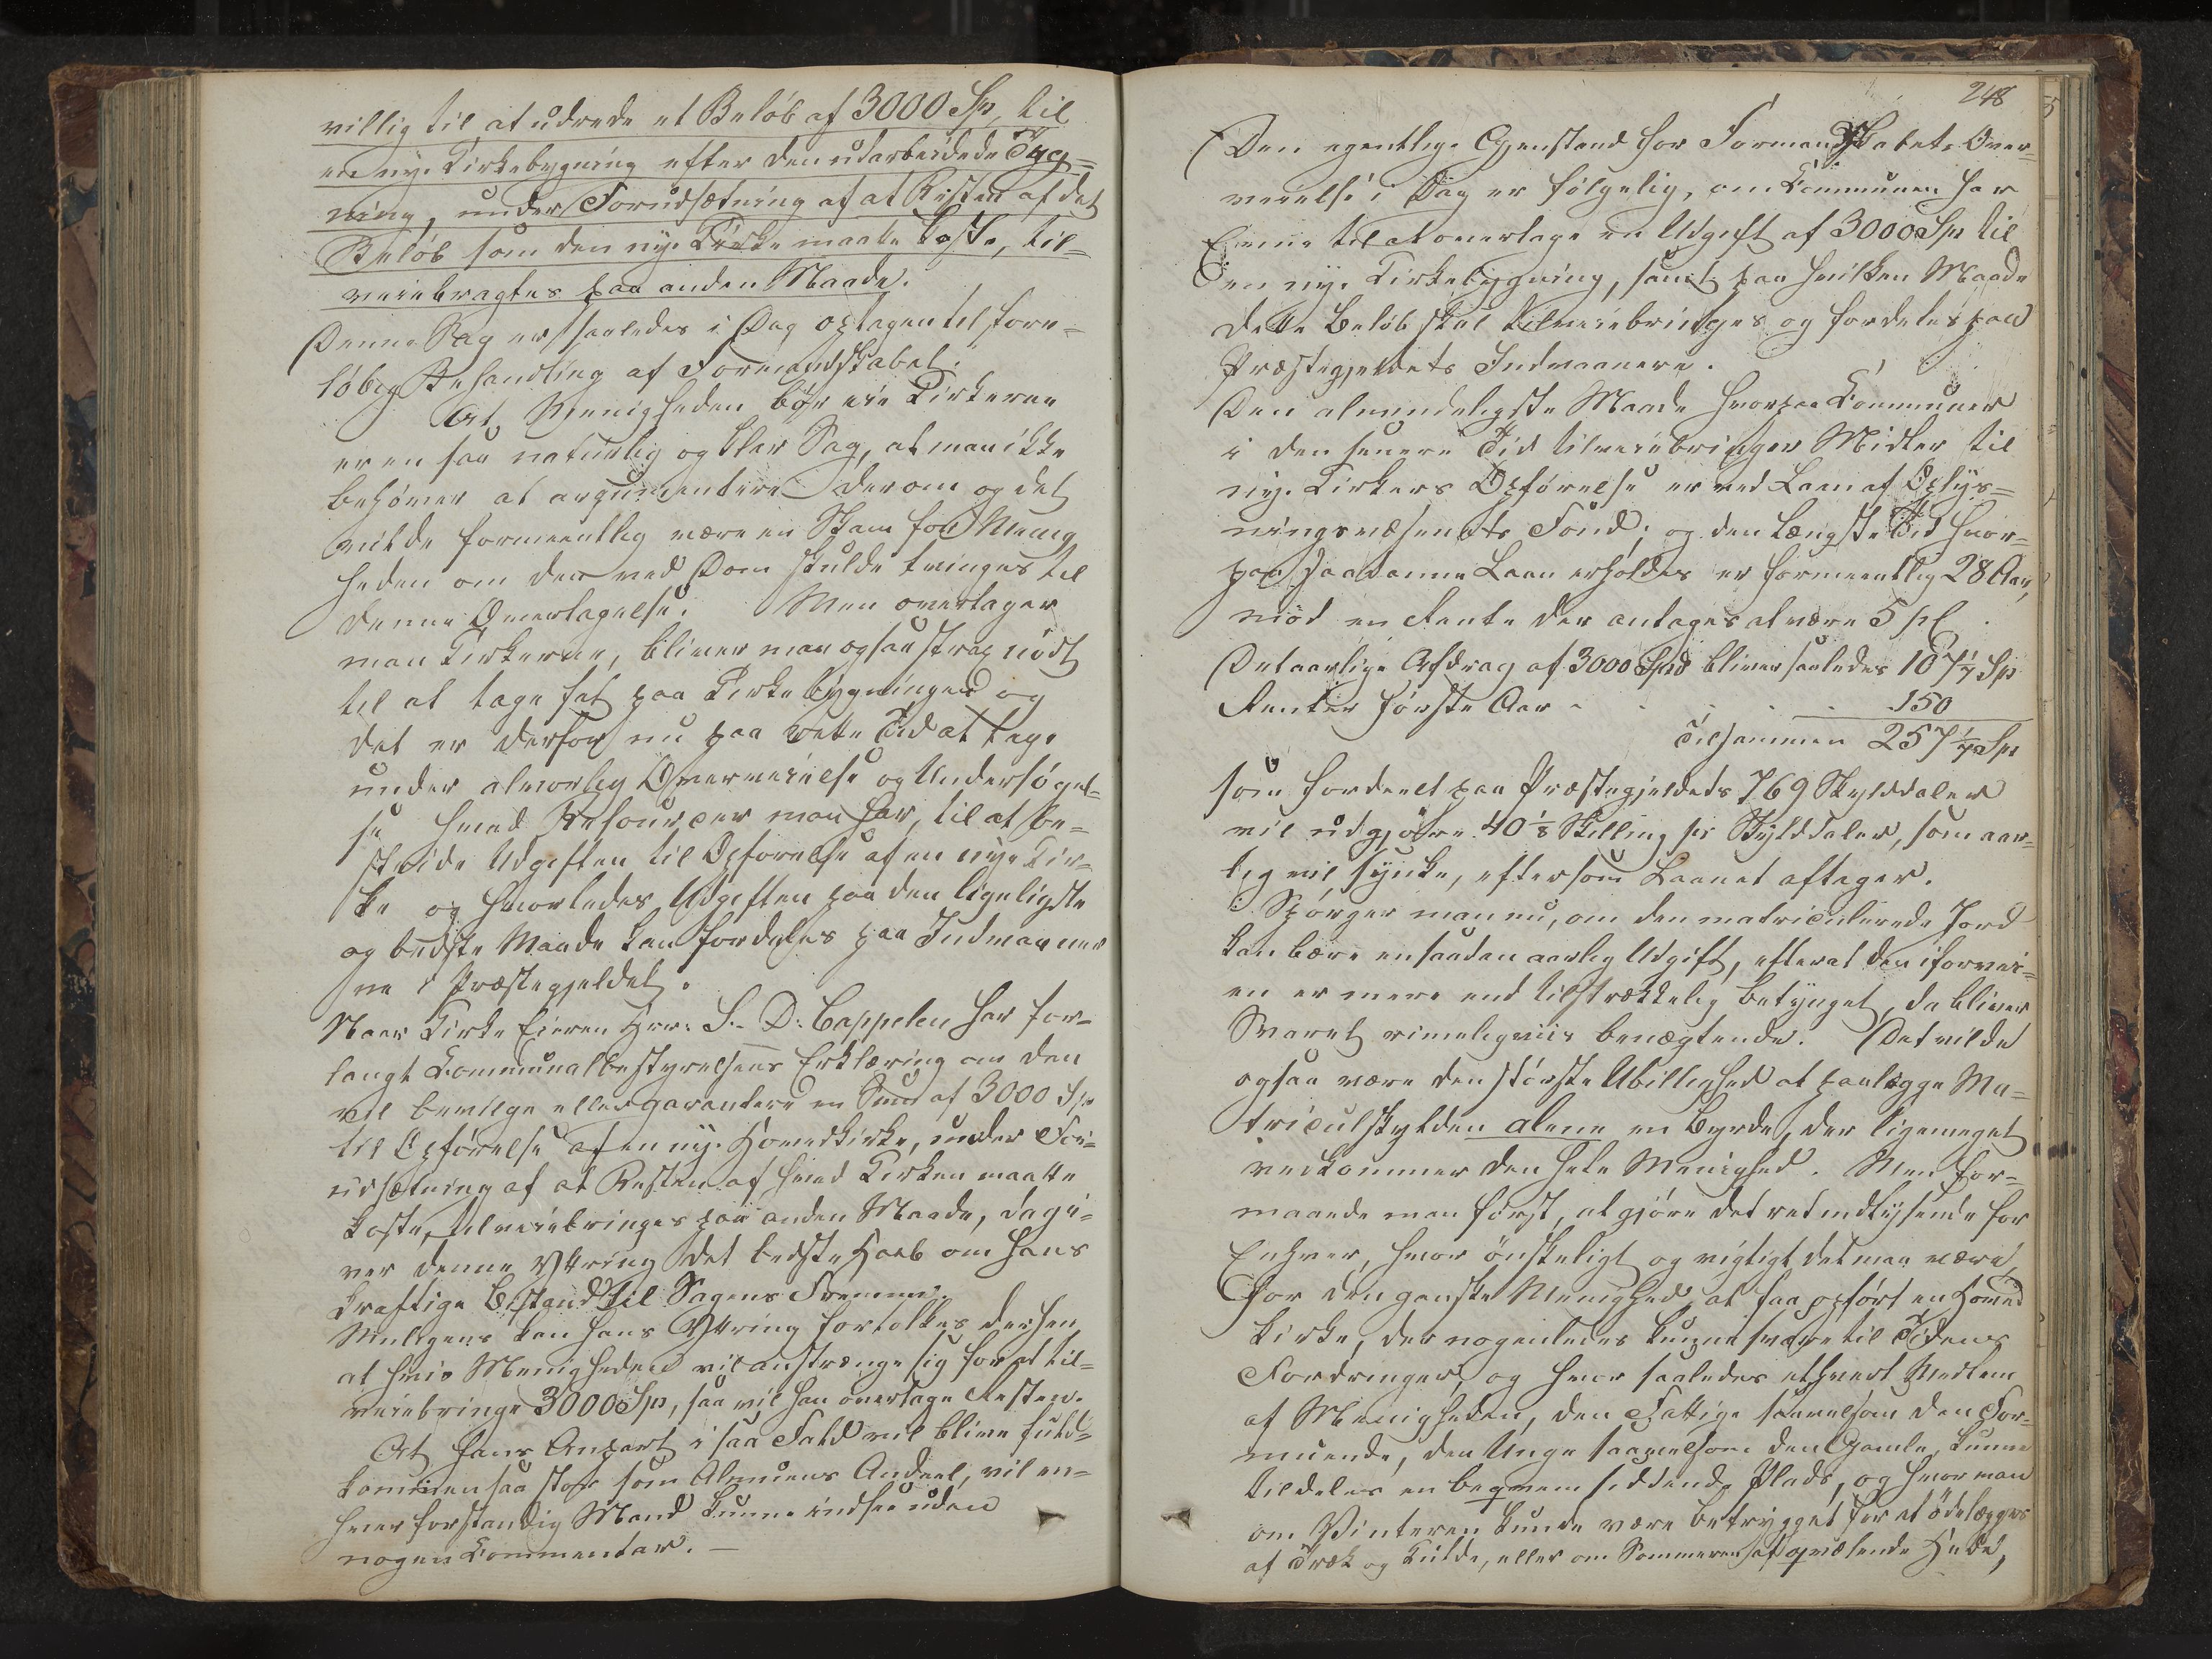 villig til at udrede et Beløb af 3000 Sp, til
en nye Kirkebygning efter den udarbeidede Teg=
ning, under Forudsætning af at Resten af det
Beløb som den nye Kirke maate koste, til=
veiebragtes paa anden Maade.
Denne Sag er saaledes i Dag optagen til fore=
løbig Behandling af Formandskabet:
At Menigheden bør eie Kirkerne
er en saa naturlig og klar Sag, at man ikke
behøver at argumentere derom og det
vilde formeentlig være en Skam for Menig
heden om den ved Dom skulde tvinges til
denne Overtagelse. Men overtager
man Kirkerne, bliver man ogsaa strax nødt
til at tage fat paa Kirkebygningen og
det er derfor nu paa rette Tid at tage
under alvorlig Overveielse og Undersøgel=
se hvad Resourcer man har, til at be=
stride Udgiften til Opførelse af en nye Kir=
ke og hvorledes Udgiften paa den ligeligste
og bedste Maade kan fordeles paa Indvaaner
ne i Præstegjeldet.
Naar Kirke Eieren Hrr: S. D: Cappelen har for=
langt Communalbestyrelsens Erklæring om den
vil bevilge eller garantere en Sum af 3000 Sp
til Opførelse af en nye Hovedkirke, under For=
udsætning af at Resten af hvad Kirken maatte
koste, tilveiebringes paa anden Maade, da gi=
ver denne Yttring det bedste Haab om hans
kraftige Bistand til Sagens Fremme.
Muligens kan hans Yttring fortolkes derhen
at hvis Menigheden vil anstrænge sig for at til=
veiebringe 3000 Sp, saa vil han overtage Resten.
At hans Anpart i saa Fald vil blive fuld=
kommen saa stor som Almuens Andeel, vil en=
hver forstandig Mand kunne indsee uden
nogen Commentar. —
248
Den egentlige Gjenstand for Formandskabets Over=
veielse i Dag er følgelig, om Communen har
Evne til at overtage en Udgift af 3000 Sp til
en nye Kirkebygning, samt paa hvilken Maade
dette Beløb skal tilveiebringes og fordeles paa
Præstegjeldets Indvaanere.
Den almindeligste Maade hvorpaa Communer
i den senere Tid tilveiebringer Midler til
nye Kirkers Opførelse er ved Laan af Oplys=
ningsvæsenets Fond; og den længste Tid hvor=
paa saadanne Laan erholdes er formeentlig 28 Aar,
mod en Rente der antages at være 5 pC.
Det aarlige Afdrag af 3000 Spd bliver saaledes 107 1/7 Sp
Renter første Aar - - - - - 150
Tilsammen 257 1/7 Sp
som fordeelt paa Præstegjeldets 769 Skylddaler
vil udgjøre 40 1/8 Skilling pr Skylddaler, som aar=
lig vil synke, eftersom Laanet aftager.
Spørger man nu, om den matriculerede Jord
kan bære en saadan aarlig Udgift, efterat den iforvei=
en er mere end tilstrækkelig betynget, da bliver
Svaret rimeligviis benægtende. Det vilde
ogsaa være den største Ubillighed at paalægge Ma=
triculskylden alene en Byrde, der ligemeget
vedkommer den hele Menighed. Men for=
maaede man først, at gjøre det ret indlysende for
Enhver, hvor ønskeligt og vigtigt det maa være
for den ganske Menighed at faa opført en Hoved
kirke, der nogenledes kunne svare til Tidens
Fordringer, og hvor saaledes ethvert Medlem
af Menigheden, den Fattige saavelsom den For=
muende, den Unge saavelsom den Gamle, kunne
tildeles en beqvem siddende Plads, og hvor man
om Vinteren kunde være betrygget for at ødelægges
af Træk og Kulde, eller om Sommeren af qvælende Hede,